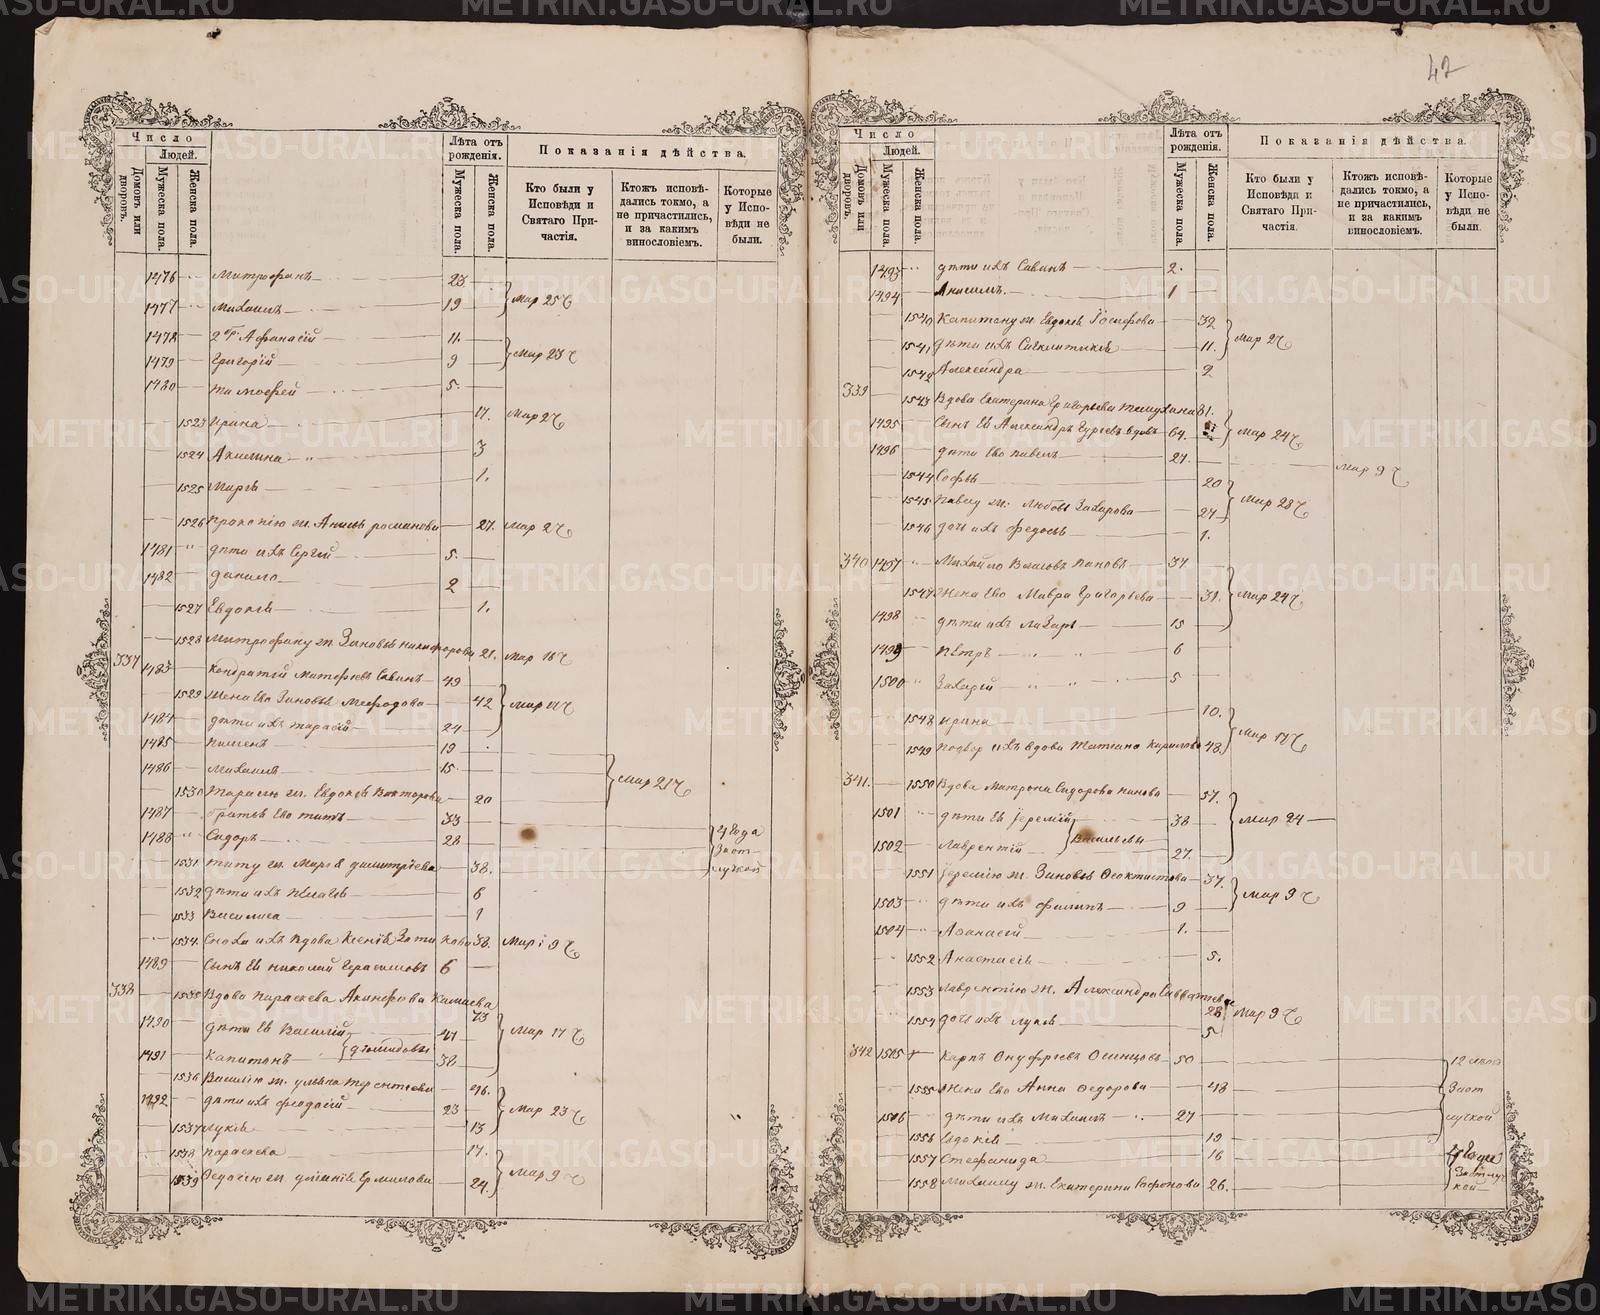 42
Число
Людей.
Домовъ или дворовъ.
Мужеска пола.
Женска пола.
Лѣта отъ рожденія.
Мужеска пола.
Женска пола.
Показанія дѣйства.
Кто были у Исповѣди и Святаго Причастія.
Ктожъ исповѣдались токмо, а не причастились, и за какимъ винословіемъ.
Которые у Исповѣди не были.
1476 Митрофанъ 23
1477 Михаилъ 19 Мар 25
1478 2й Афанасій 11
1479 Григорій 9 Мар 23
1480 Тимофей 5
1523 Ирина 17 Мар 2
1524 Акилина 3
1525 Марѳа 1
1526 Прокопію ж. Анисья романова 27 Мар 2
1481 дѣти ихъ Сергій 5
1482 данило 2
1527 Евдокія 1
1528 Митрофану ж Зиновья никифорова 21 Мар 16
337 1483 Кондратій Матфеевъ Савинъ 49
1529 Жена Его Зиновья Мефодова 42
1484 дѣти ихъ тарасій 24
1485 Пименъ 19
1486 Михаилъ 15 Мар 21
1530 Тарасію ж. Евдокія Викторова 20
1487 Братья Его титъ 33
1488 Сидоръ 28 4 года За отлучкой
1531 Титу ж. Марѳа димитріева 38
1532 дѣти ихъ Пелагія 6
1533 Василиса 1
1534 Сноха ихъ Вдова Ксенія 38 Мар 9
1489 Сынъ Ея николай Герасимовъ 6
338 1535 Вдова Параскева Акинфова 73
1490 дѣти Ея Василій 41 Мар 17
1491 Капитонъ 38
1536 Василію ж. ульяна терентьева 46
1492 дѣти ихъ феодосій 23 Мар 23
1537 Лукія 13
1538 Параскева 17
1539 Ѳедосію ж. Ермилова 24 Мар 9
Число
Людей.
Домовъ или дворовъ.
Мужеска пола.
Женска пола.
Лѣта отъ рожденія.
Мужеска пола.
Женска пола.
Показанія дѣйства.
Кто были у Исповѣди и Святаго Причастія.
Ктожъ исповѣдались токмо, а не причастились, и за какимъ винословіемъ.
Которые у Исповѣди не были.
1493 дѣти ихъ Савинъ 2
1494 Анисимъ 1
1540 Капитону ж. Евдокія Іосифова 32
1541 дѣти ихъ Синклитикія 11 Мар 2
1542 Александра 2
339 1543 Вдова Екатерина Григорьева 81
1495 Сынъ Ея Александръ Гурьевъ вдовъ 64 Мар 24
1496 дѣти Его павелъ 27 Мар 9
1544 Софья 20
1545 Павлу ж. Любовь Захарова 24 Мар 28
1546 дочь ихъ Федосья 1
340 1497 Михайло Власовъ Пановъ 37
1547 Жена Его Мавра Григорьева 39 Мар 24
1498 дѣти ихъ Лазарь 15
1499 Петръ 6
1500 Захарій 5
1548 Ирина 10
1549 Подвор ихъ вдова Татіана Кирилова 48 Мар 17
341 1550 Вдова Матрона Сидорова панова 57
1501 дѣти Ея Іеремій 38 Мар 24
1502 Лаврентій Васильевы 27
1551 Іеремію ж. Зиновья Ѳеоктистова 37
1503 дѣти ихъ филипъ 9 Мар 9
1504 Афанасій 1
1552 Анастасія 5
1553 Лаврентію ж. Александра Савватьева 28 Мар 9
1554 дочь ихъ Лукія 5
342 1505 Карпъ Онуфріевъ Осинцовъ 50 12 лѣтъ
1555 Жена Его Анна Ѳедорова 48 За отлучкой
1506 дѣти ихъ Михаилъ 27
1556 Евдокія 19
1557 Стефанида 16
1558 Михаилу ж. Екатерина Сафонова 26 За отлучкой